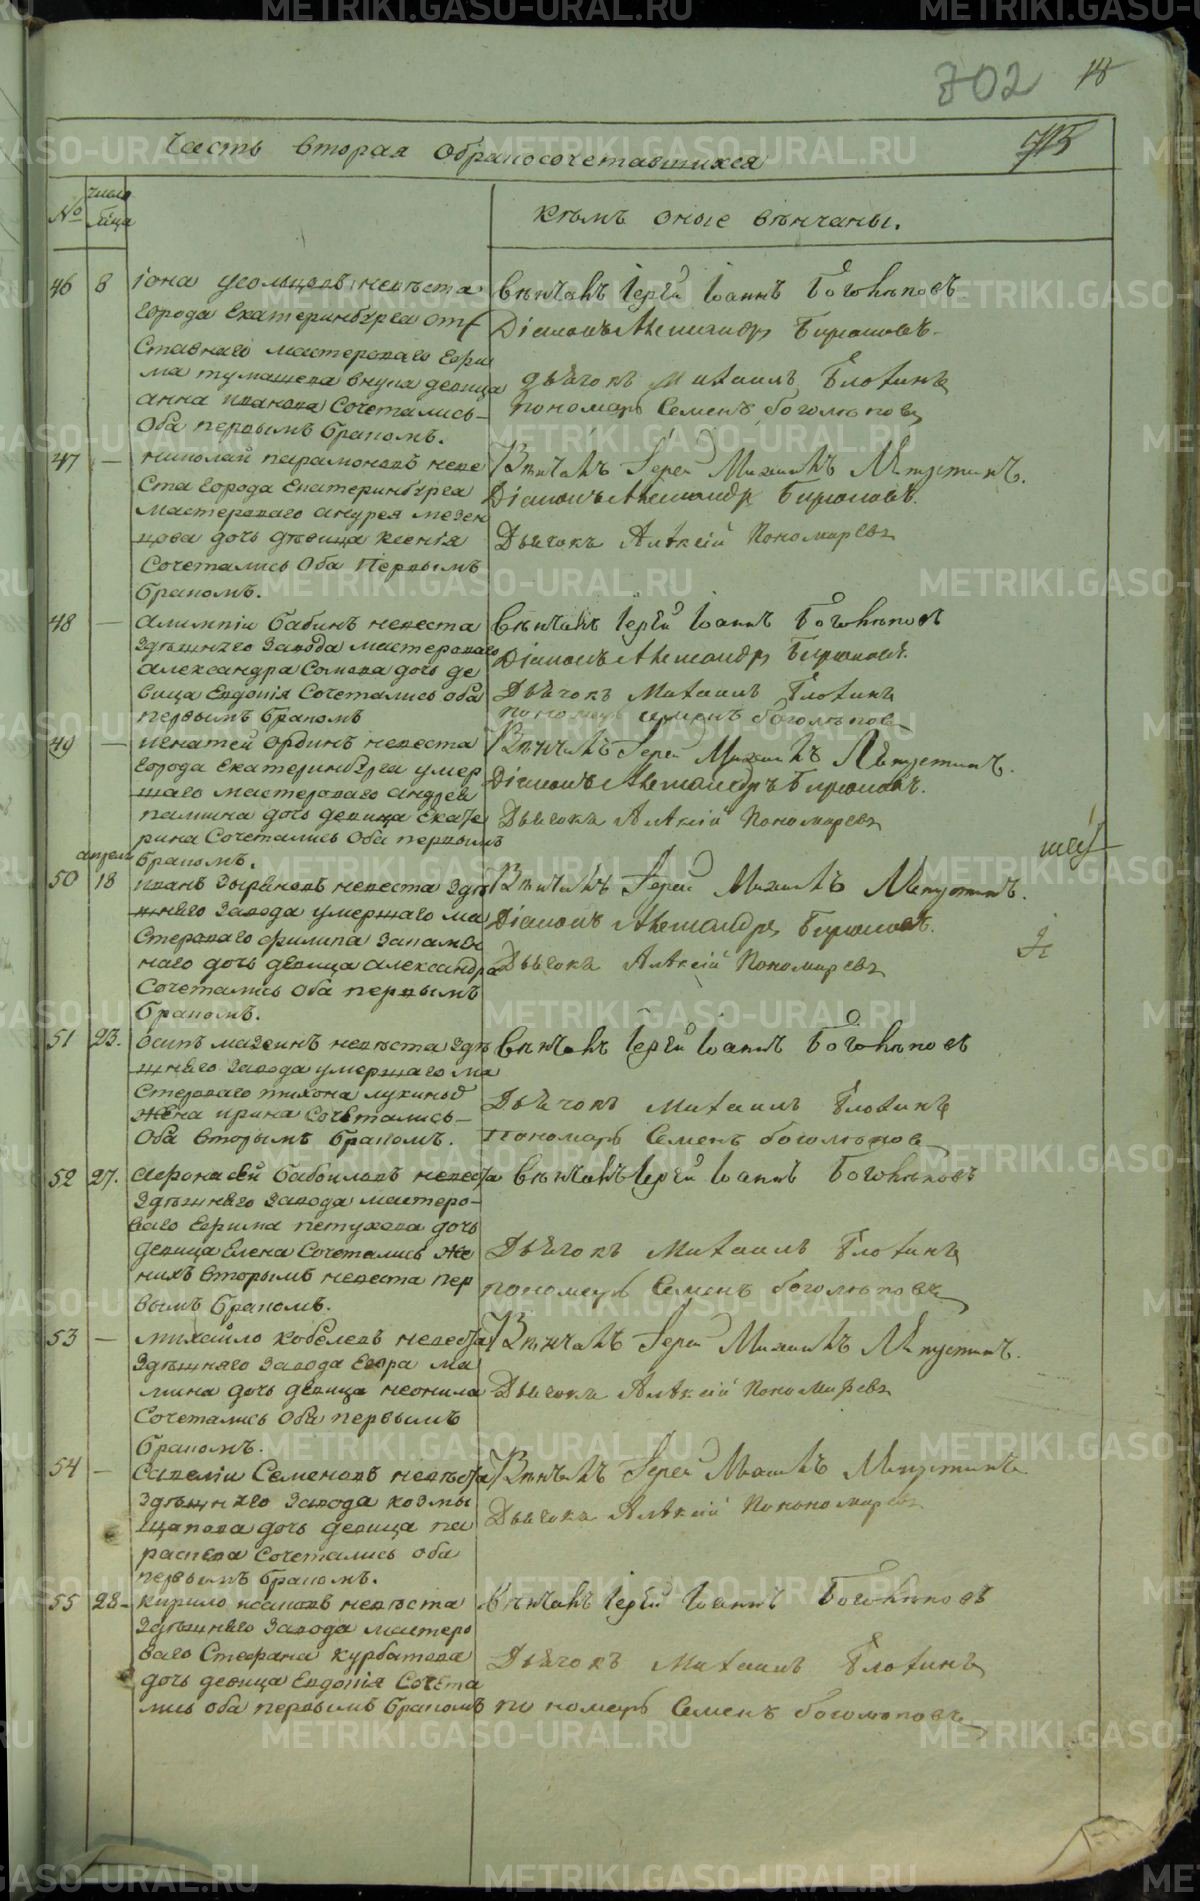 702
18
Часть вторая обракосочетавшихся
715
№
число
мсца
кѣмъ оные вѣнчаны.
46 8 іона усольцовъ невѣста
города Екатеринбурга от
ставнаго мастероваго Ефи
ма тумашева внука девица
анна иванова Сочетались
Оба первымъ бракомъ.
вѣнчалъ Іерей Іоаннъ Боголѣповъ
Діаконъ Александръ Бирюковъ.
дьячокъ Михаилъ Плотинъ
пономарь Семенъ боголѣповъ
47 — николай парамоновъ неве
ста города Екатеринбурга
мастероваго андрея мезен
цова дочь дѣвица ксенія
Сочетались Оба Первымъ
бракомъ.
Вѣнчалъ Іерей Михаилъ
Діаконъ Александръ Бирюковъ.
Дьячокъ Алѣксій Пономаревъ
48 — алимпій бабинъ невеста
здѣшняго завода мастероваго
александра Сомова дочь де
вица Евдокія Сочетались оба
первымъ бракомъ
вѣнчалъ Іерей Іоаннъ Боголѣповъ
Діаконъ Александръ Бирюковъ.
Дьячокъ Михаилъ Плотинъ
пономарь семенъ боголѣповъ
49 — игнатей ординъ невеста
города Екатеринбурга умер
шаго мастероваго андрея
дочь девица Екате
рина Сочетались Оба первымъ
бракомъ.
Вѣнчалъ Іерей Михаилъ
Діаконъ Александръ Бирюковъ.
Дьячокъ Алѣксій Пономаревъ
апреля
50 18 иванъ Зыряновъ невеста здѣ
шняго завода умершаго ма
стероваго филипа
дочь девица александра
Сочетались оба первымъ
бракомъ.
Вѣнчалъ Іерей Михаилъ
Діаконъ Александръ Бирюковъ.
Дьячокъ Алѣксій Пономаревъ
51 23. осипъ мазеинъ невѣста здѣ
шняго завода умершаго ма
стероваго тихона лукиныхъ
жена ирина сочетались
Оба вторымъ бракомъ.
вѣнчалъ Іерей Іоаннъ Боголѣповъ
Дьячокъ Михаилъ Плотинъ
Пономарь Семенъ боголѣповъ
52 27. Афонасей бабоиловъ невеста
здѣшняго завода мастеро-
ваго Ефима петухова дочь
девица Елена Сочетались же
нихъ вторымъ невеста пер
вымъ бракомъ.
вѣнчалъ Іерей Іоаннъ Боголѣповъ
Дьячокъ Михаилъ Плотинъ
пономарь Семенъ боголѣповъ
53 — михайло кобелевъ невеста
здѣшняго завода Егора ма
лина дочь девица неонила
Сочетались Оба первымъ
бракомъ.
Вѣнчалъ Іерей Михаилъ
Дьячокъ Алѣксій Пономаревъ
54 — Савелій Семеновъ невѣста
здѣшняго завода козмы
щапова дочь девица па
раскева Сочетались оба
первымъ бракомъ.
Вѣнчалъ Іерей Михаилъ
Дьячокъ Алѣксій
55 28 кирило исаковъ невѣста
здѣшняго завода мастеро
ваго Стефана курбатова
дочь девица Евдокія Сочета
лись оба первымъ бракомъ
вѣнчалъ Іерей Іоаннъ Боголѣповъ
Дьячокъ Михаилъ Плотинъ
пономарь Семенъ боголѣповъ
METRIKI.GASO-URAL.RU